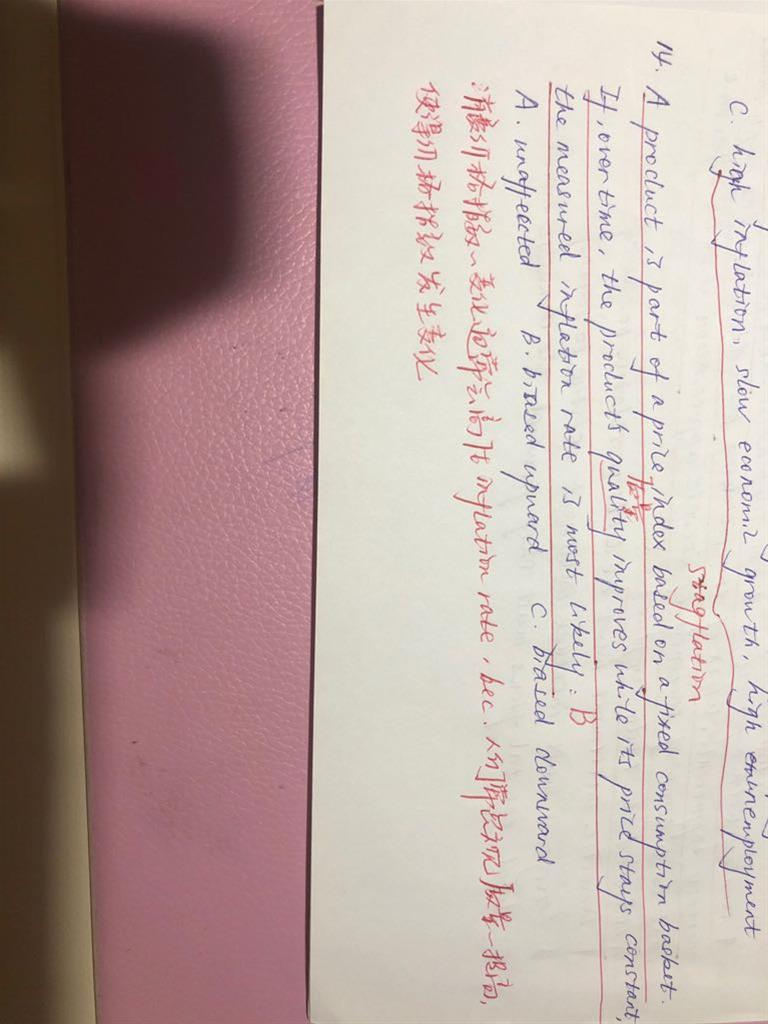 C. high inflation, slow economic growth, high unemployment
stagflation
14. A product is part of a price index based on a fixed consumption basket.
质量
If, over time, the product's quality improves while its price stays constant,
the measured inflation rate is most likely: B
A. unaffected B. biased upward C. biased downward
消费价格指数 变化通常会高估 inflation rate, bec. 人们 质量 提高,
使得价格指数发生变化